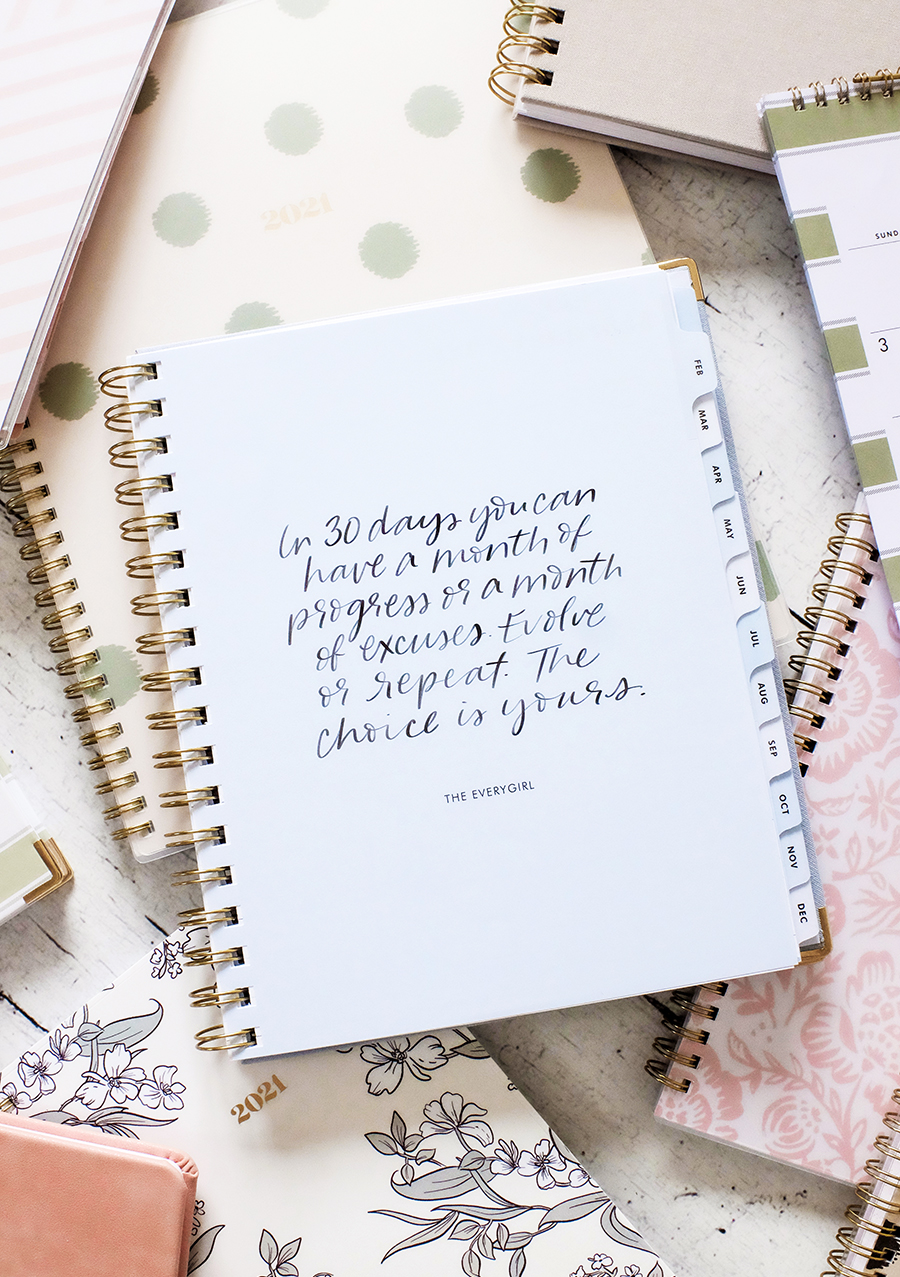 2021
SUND
3
FEB
MAR
APR
MAY
JUN
JUL
AUG
SEP
OCT
NOV
DEC
In 30 days you can
have a month of
progress or a month
of excuses. Evolve
or repeat. The
choice is yours.
THE EVERYGIRL
2021